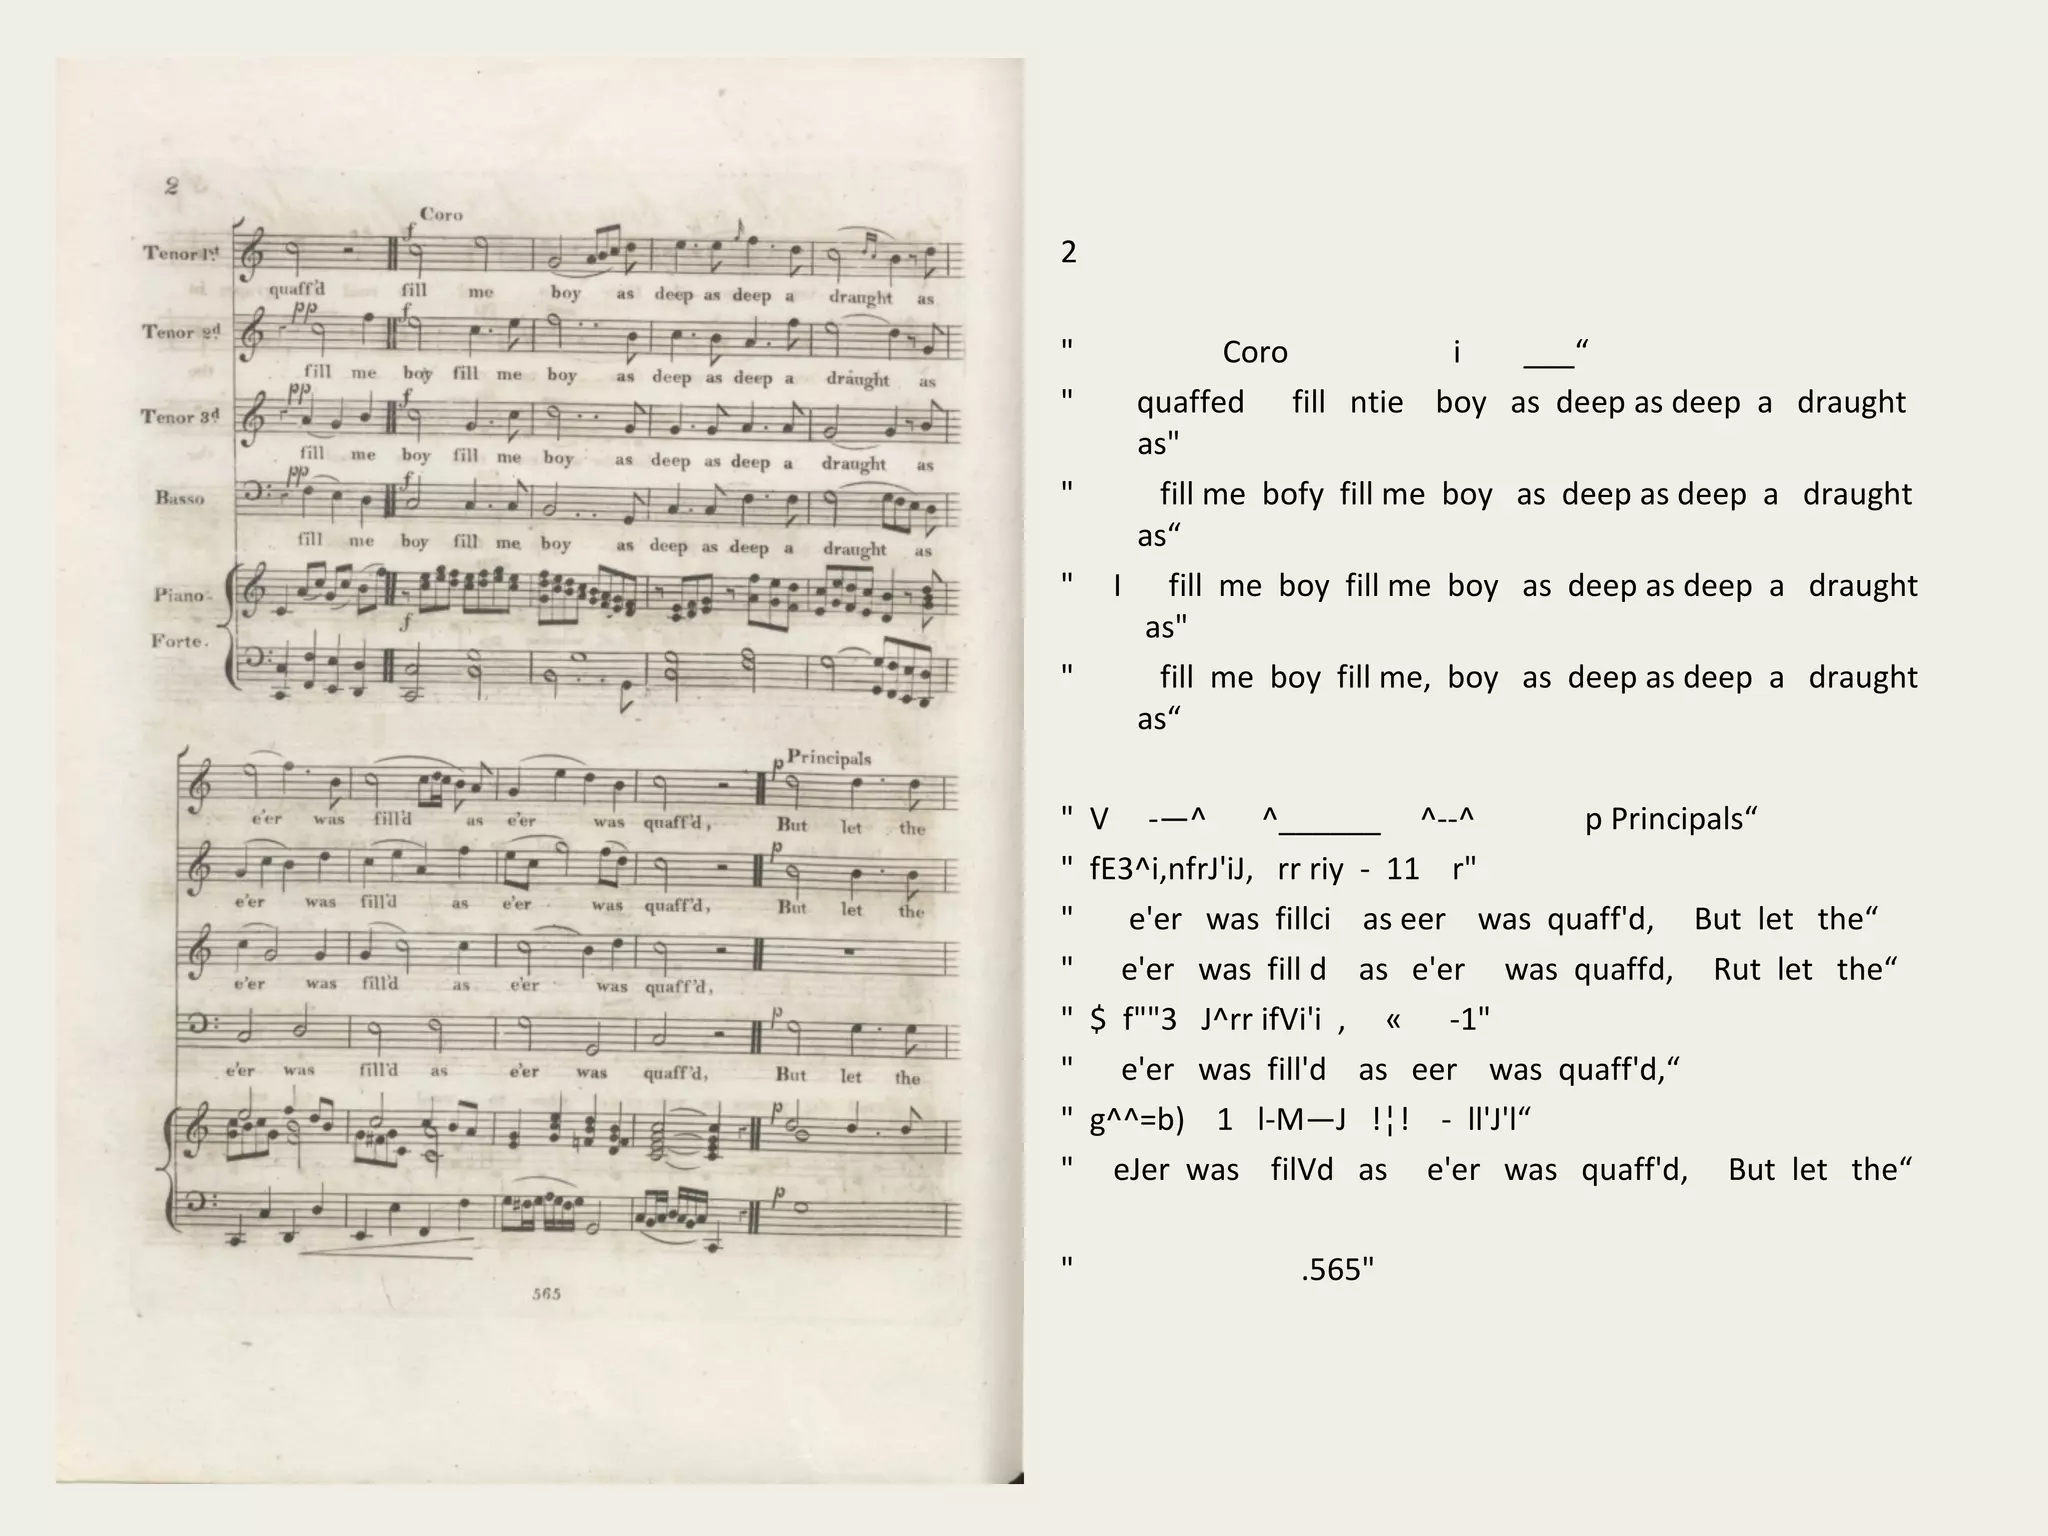 2
Coro
f
Tenor 1st
quaff'd fill me boy as deep as deep a draught as
pp f
Tenor 2d
fill me boy fill me boy as deep as deep a draught as
pp f
Tenor 3d
fill me boy fill me boy as deep as deep a draught as
pp f
Basso
fill me boy fill me boy as deep as deep a draught as
Piano
f
Forte.
p Principals
e'er was fill'd as e'er was quaff'd, But let the
p
e'er was fill'd as e'er was quaff'd, But let the
e'er was fill'd as e'er was quaff'd,
p
e'er was fill'd as e'er was quaff'd, But let the
p
p
565
2
" Coro i ___“
" quaffed fill ntie boy as deep as deep a draught
as"
" fill me bofy fill me boy as deep as deep a draught
as“
" I fill me boy fill me boy as deep as deep a draught
as"
" fill me boy fill me, boy as deep as deep a draught
as“
" V -—^ ^______ ^--^ p Principals“
" fE3^i,nfrJ'iJ, rr riy - 11 r"
" e'er was fillci as eer was quaff'd, But let the“
" e'er was fill d as e'er was quaffd, Rut let the“
" $ f""3 J^rr ifVi'i , « -1"
" e'er was fill'd as eer was quaff'd,“
" g^^=b) 1 l-M—J !¦! - ll'J'l“
" eJer was filVd as e'er was quaff'd, But let the“
" .565"